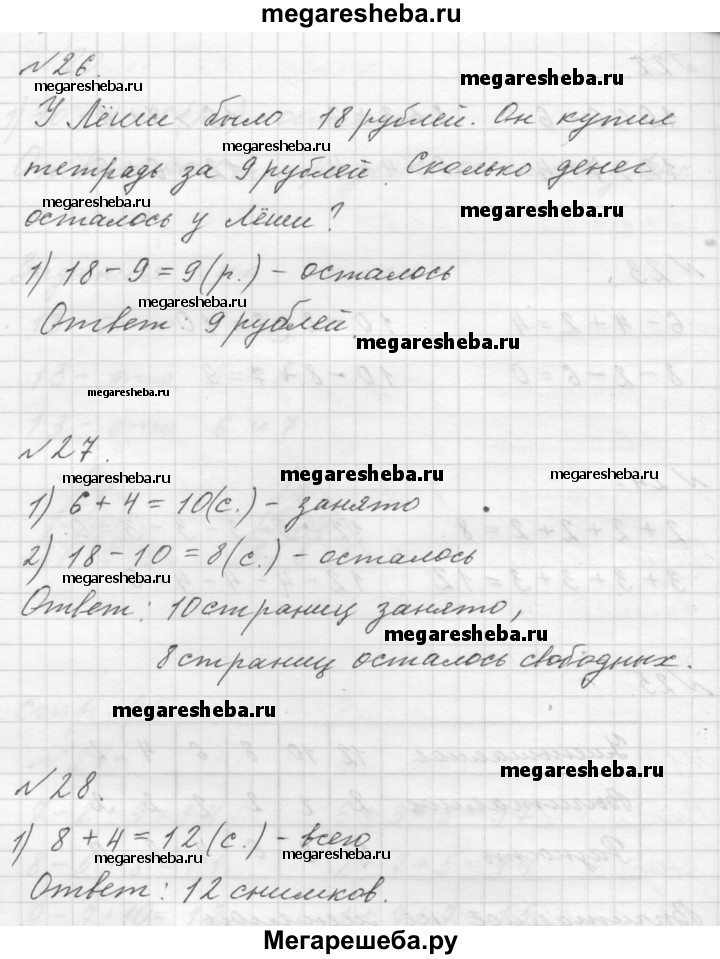 megaresheba.ru
№26.
megaresheba.ru
megaresheba.ru
У Лёши было 18 рублей. Он купил
megaresheba.ru
тетрадь за 9 рублей. Сколько денег
megaresheba.ru
megaresheba.ru
осталось у Лёши?
1) 18 - 9 = 9 (р.) - осталось
megaresheba.ru
Ответ: 9 рублей.
megaresheba.ru
megaresheba.ru
№27.
megaresheba.ru
megaresheba.ru
megaresheba.ru
1) 6 + 4 = 10 (с.) - занято
2) 18 - 10 = 8 (с.) - осталось
megaresheba.ru
Ответ: 10 страниц занято,
megaresheba.ru
8 страниц осталось свободных.
megaresheba.ru
megaresheba.ru
№28.
1) 8 + 4 = 12 (с.) - всего
megaresheba.ru
megaresheba.ru
Ответ: 12 снимков.
Мегарешеба.ру